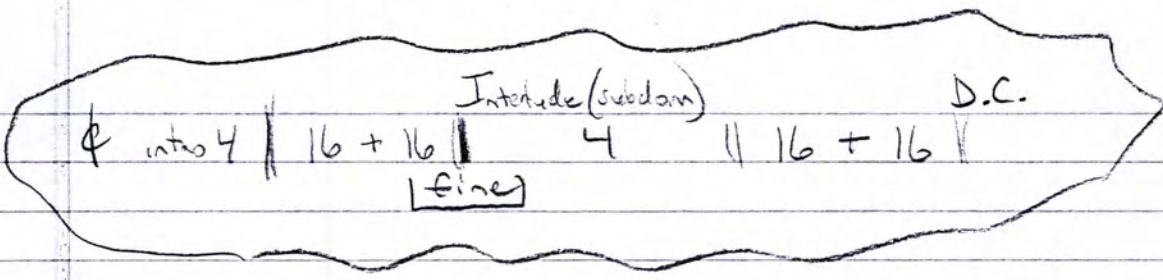 Interlude (subdom) D.C.
¢ intro 4 || 16 + 16 || 4 || 16 + 16 ||
fine